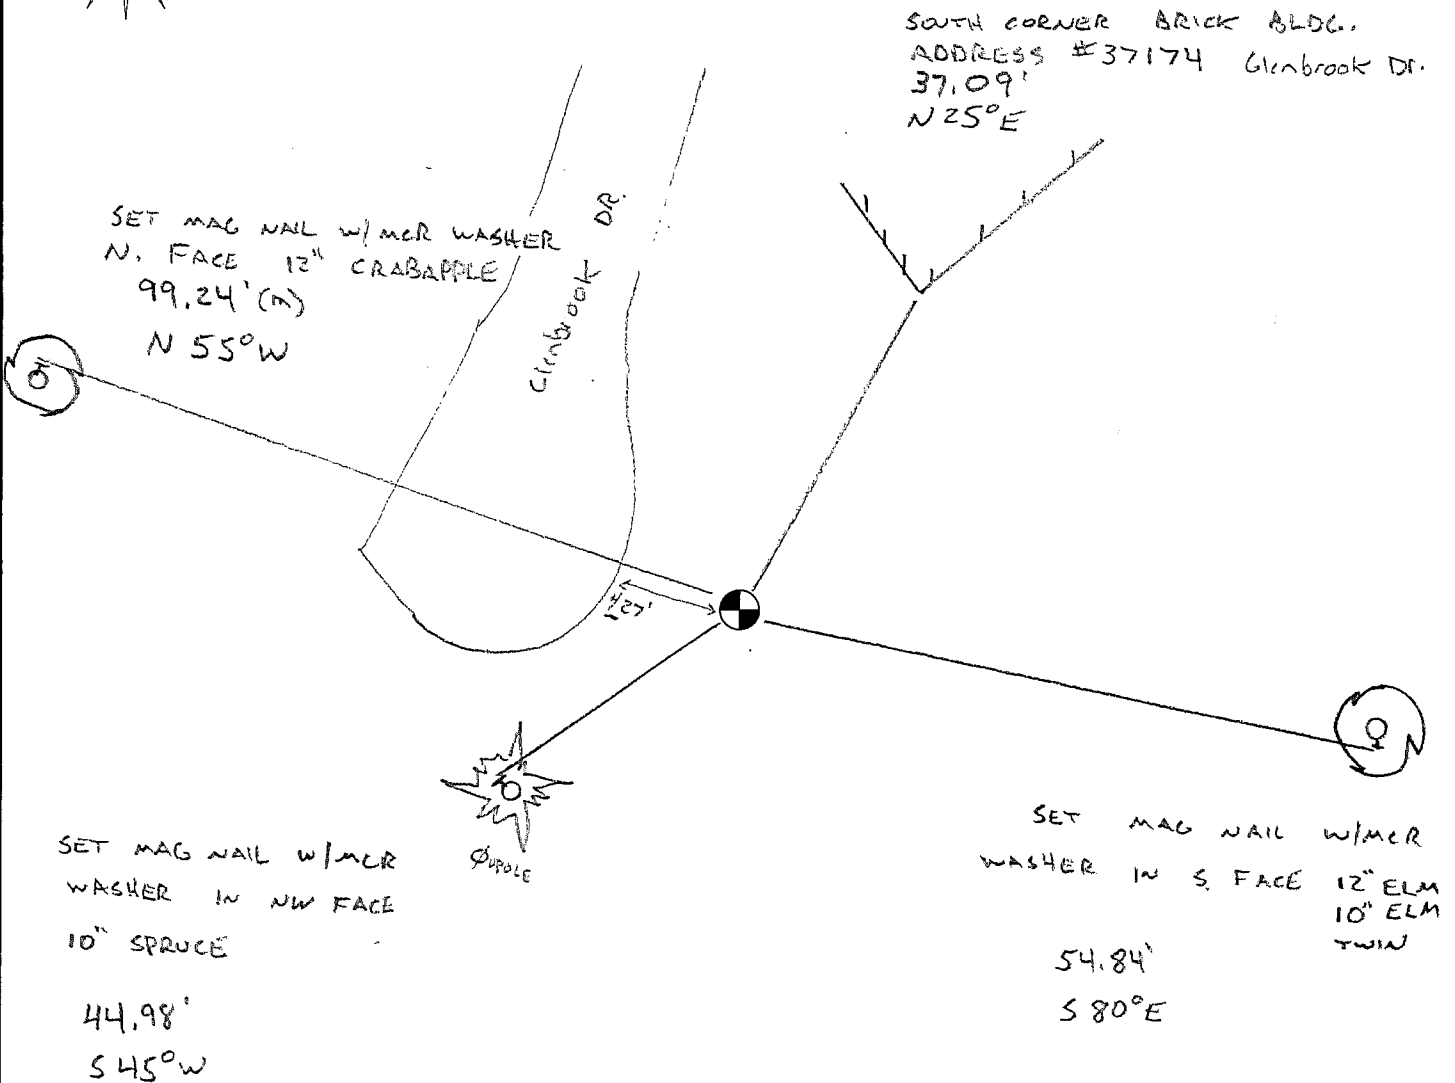 SOUTH CORNER BRICK BLDG.
ADDRESS #37174 Glenbrook Dr.
37.09'
N 25° E
SET MAG NAIL W/ MCR WASHER
N. FACE 12" CRABAPPLE
99.24' (m)
N 55° W
Glenbrook DR.
±27'
SET MAG NAIL W/MCR
WASHER IN NW FACE
10" SPRUCE
44.98'
S 45° W
SET MAG NAIL W/MCR
WASHER IN S. FACE 12" ELM
10" ELM
TWIN
54.84'
S 80° E